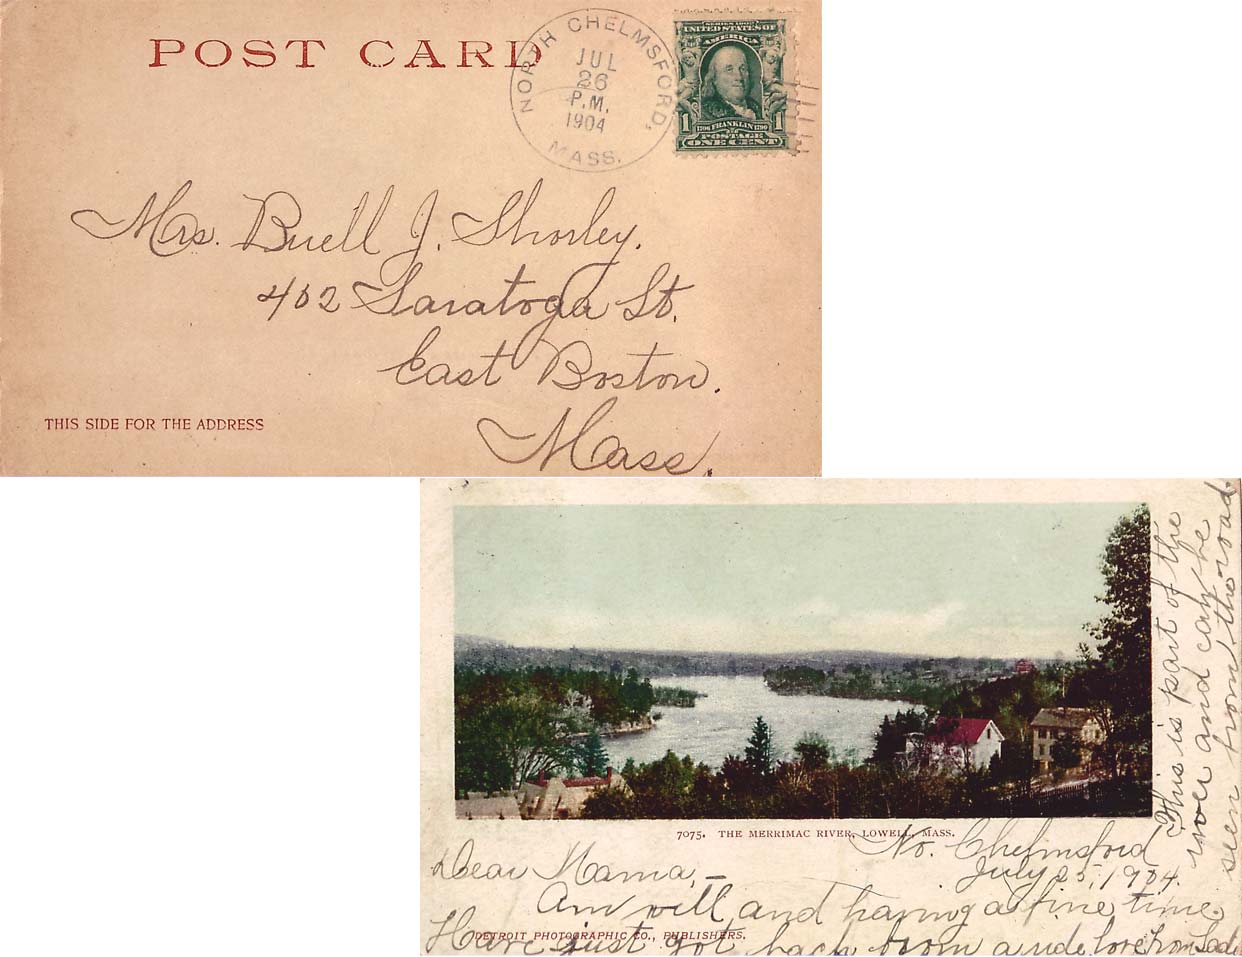 POST CARD
NORTH CHELMSFORD, MASS.
JUL
26
P.M.
1904
SERIES 1902
UNITED STATES OF
AMERICA
1 1706 FRANKLIN 1790 1
POSTAGE
ONE CENT
Mrs. Buell J. Shorley.
402 Saratoga St.
East Boston.
Mass.
THIS SIDE FOR THE ADDRESS
7075. THE MERRIMAC RIVER, LOWELL, MASS.
No. Chelmsford
July 25, 1904.
Dear Mama,—
Am well and having a fine time.
Have just got back from a ride
love from
DETROIT PHOTOGRAPHIC CO., PUBLISHERS.
This is part of the
river and can be
seen from the road